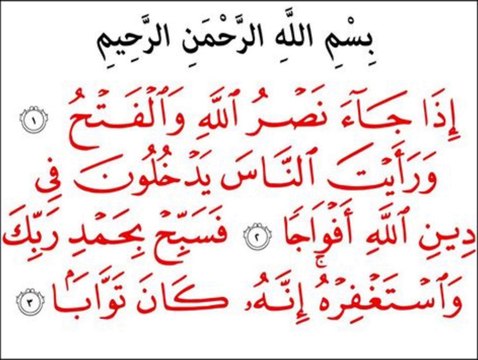 بِسْمِ اللَّهِ الرَّحْمَنِ الرَّحِيمِ
إِذَا جَآءَ نَصۡرُ ٱللَّهِ وَٱلۡفَتۡحُ ١
وَرَأَيۡتَ ٱلنَّاسَ يَدۡخُلُونَ فِي
دِينِ ٱللَّهِ أَفۡوَاجٗا ٢ فَسَبِّحۡ بِحَمۡدِ رَبِّكَ
وَٱسۡتَغۡفِرۡهُۚ إِنَّهُۥ كَانَ تَوَّابَۢا ٣